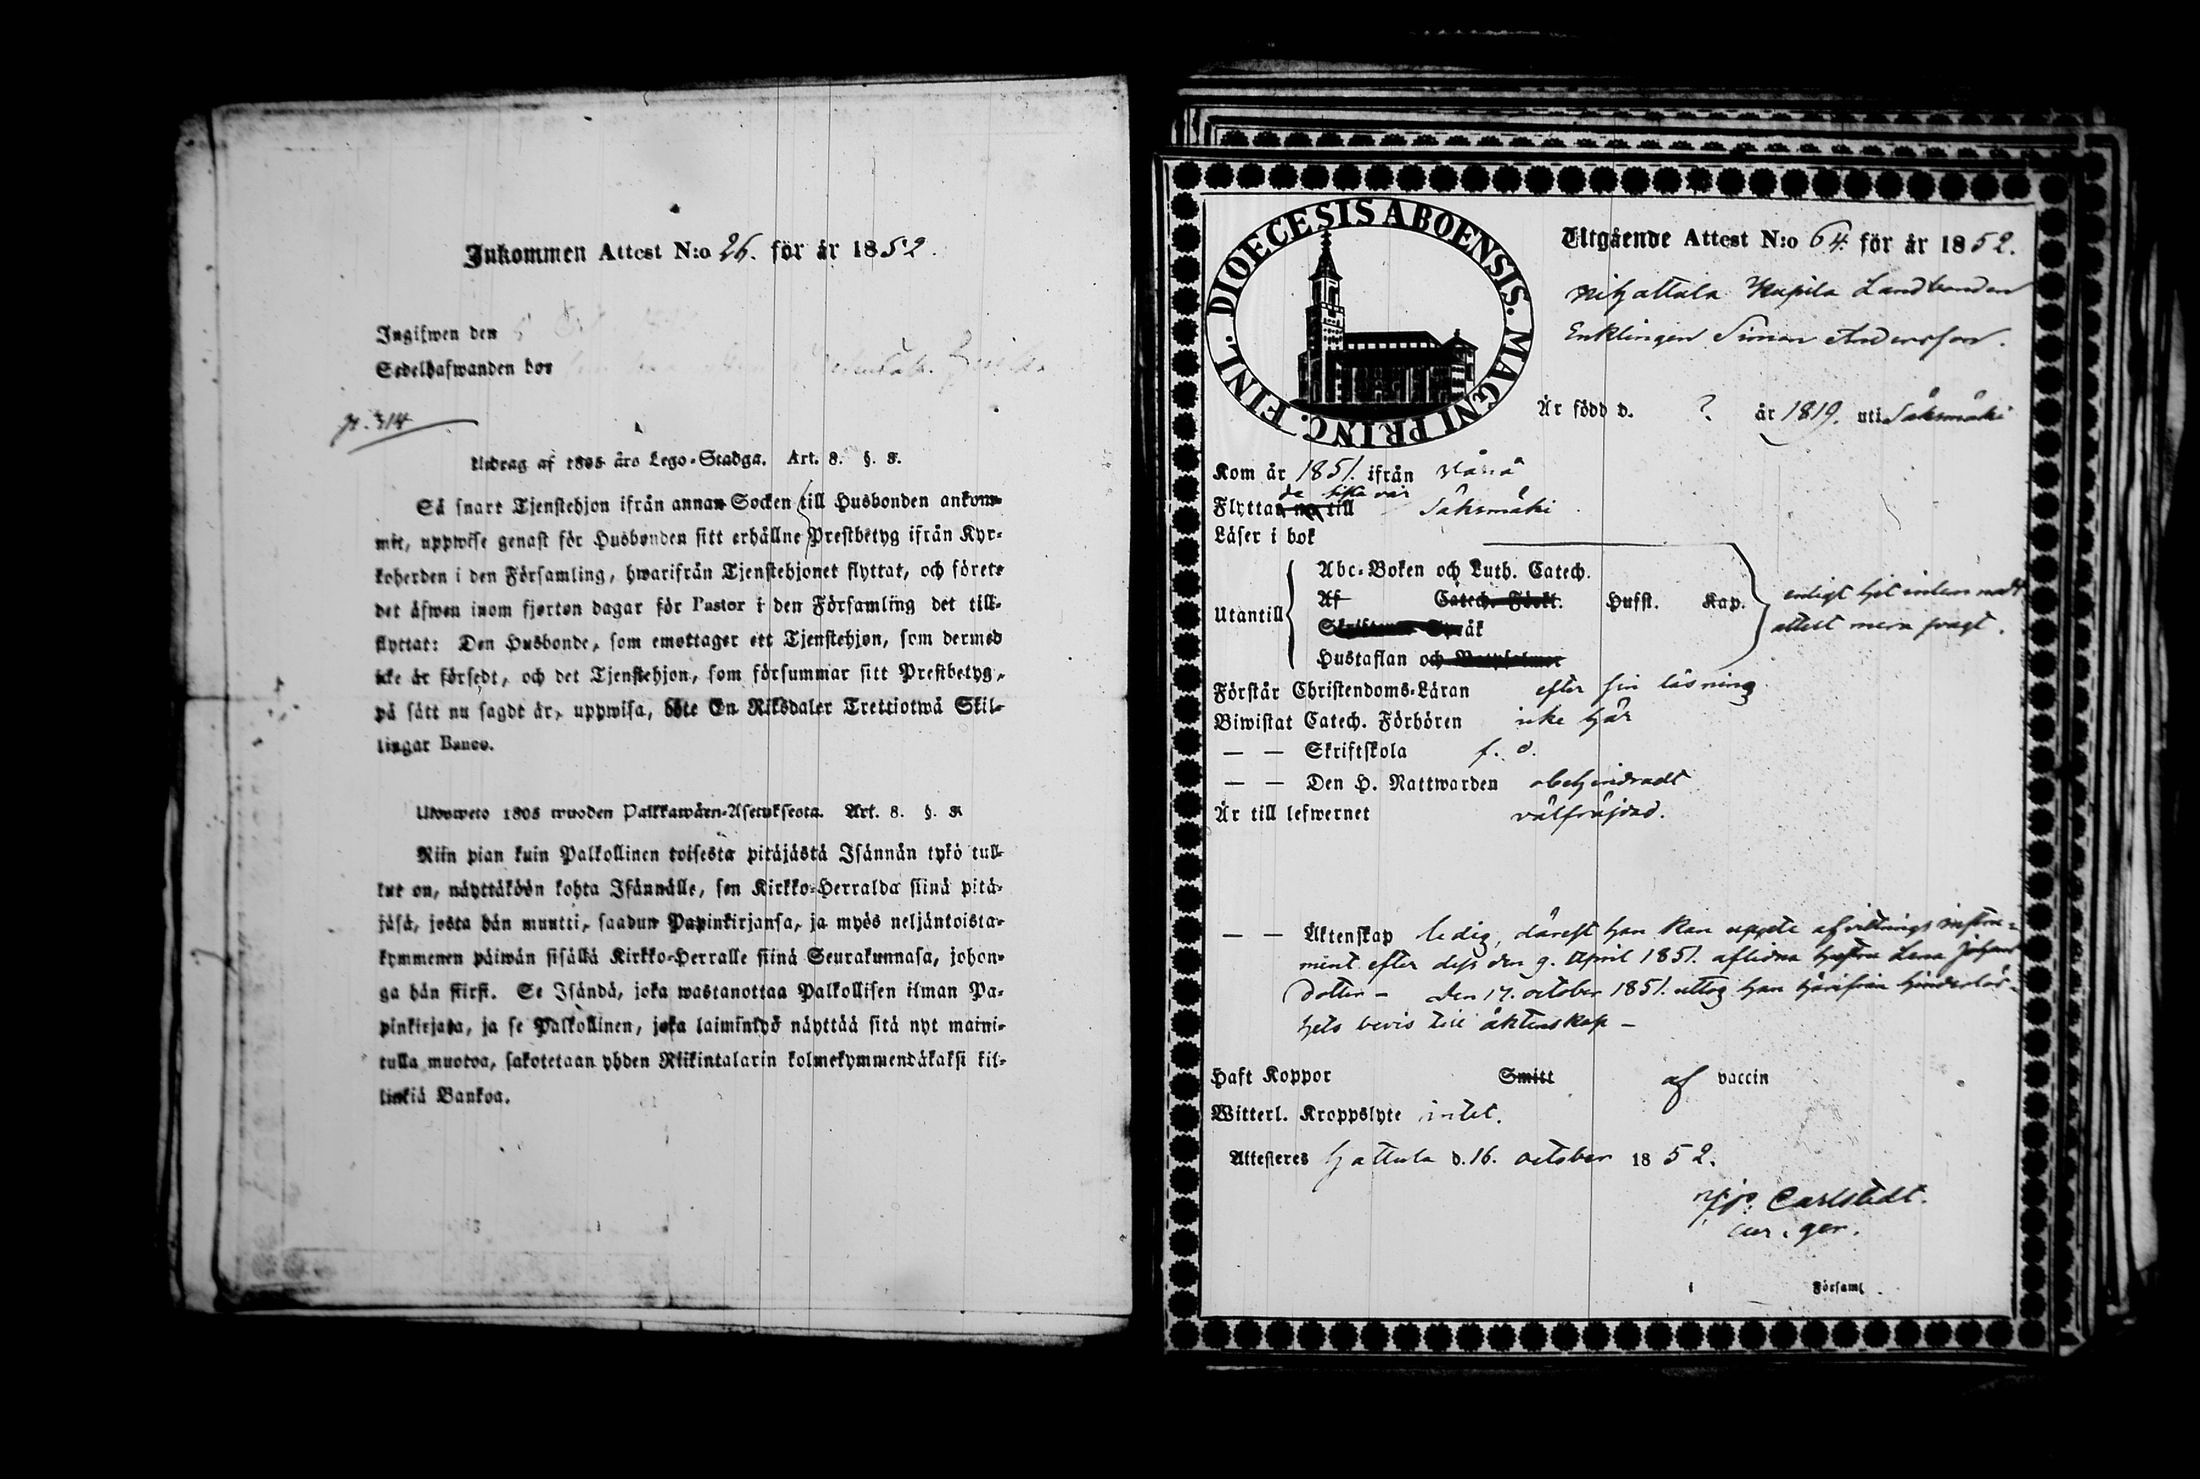 Inkommen Attest N:o 26. för år 1852.
Ingifwen den
Sedelhafwanden bor
p. 314
Utdrag af 1805 års Lego-Stadga. Art. 8. §. 8.
Så snart Tjenstehjon ifrån annan Socken till Husbonden ankom-
mit, uppwise genast för Husbonden sitt erhållne Prestbetyg ifrån Kyr-
koherden i den Församling, hwarifrån Tjenstehjonet flyttat, och förete
det äfwen inom fjorton dagar för Pastor i den Församling det till-
flyttat: Den Husbonde, som emottager ett Tjenstehjon, som dermed
icke är försedt, och det Tjenstehjon, som försummar sitt Prestbetyg,
på sätt nu sagdt är, uppwisa, böte En Riksdaler Trettiotwå Skil-
lingar Banco.
Ulosweto 1805 wuoden Palkkawäen-Asetuksesta. Art. 8. §. 8.
Niin pian kuin Palkollinen toisesta pitäjästä Isännän tykö tull-
lut on, näyttäköön kohta Isännälle, sen Kirkko-Herralda siinä pitä-
jäsä, josta hän muutti, saadun Papinkirjansa, ja myös neljäntoista-
kymmenen päiwän sisällä Kirkko-Herralle siinä Seurakunnasa, johon-
ga hän siirsi. Se Isändä, joka wastanottaa Palkollisen ilman Pa-
pinkirjata, ja se Palkollinen, joka laiminlyö näyttää sitä nyt maini-
tulla muotoa, sakotetaan yhden Riikintalarin kolmekymmendäkaksi kil-
linkiä Bankoa.
DIOECESIS ABOENSIS. MAGNI PRINC. FINL.
Utgående Attest N:o 64. för år 1852.
Hattula Landbonden
Enklingen Simon Andersson.
Är född d. ? år 1819. uti Sääksmäki
Kom år 1851. ifrån
de sista var
Flyttar nu till Sääksmäki
Läser i bok
Utantill
Abc-Boken och Luth. Catech.
Af Catech. Förkl. Husst. Kap.
Hustaflan och
enligt hit inlemnadt
attest mera svagt.
Förstår Christendoms-Läran efter sin läsning
Biwistat Catech. Förhören icke här
— — Skriftskola f. d.
— — Den H. Nattwarden obehindradt
Är till lefwernet välfräjdad.
— — Äktenskap ledig, därest han kan uppte afvittrings instru-
ment efter dess den 9. April 1851. aflidna hustru Lena Johans
dotter – den 17. october 1851. uttog han härifrån hinderlös-
hets bevis till äktenskap –
Haft Koppor Smitt af vaccin
Witterl. Kroppslyte intet.
Attesteres Hattula d. 16. october 1852.
Carlstedt.
i Församl